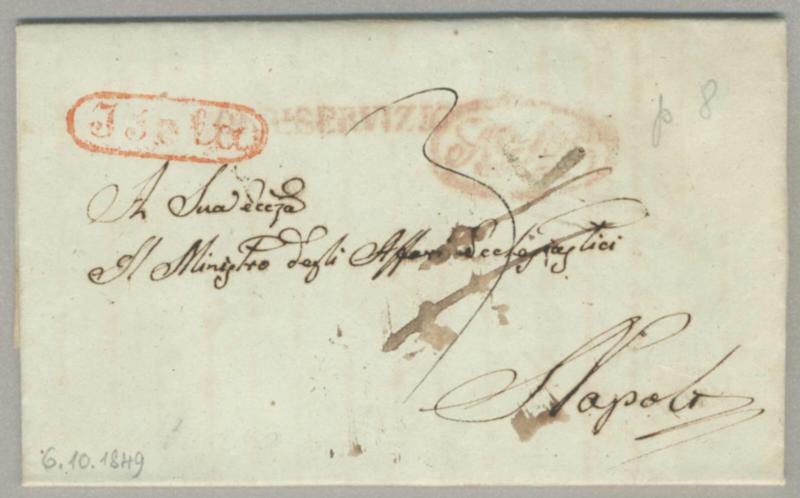 Isola
SERVIZIO
p 8
3
A Sua Ecc̃za
Il Ministro degli Affari Ecclesiastici
Napoli
6.10.1849